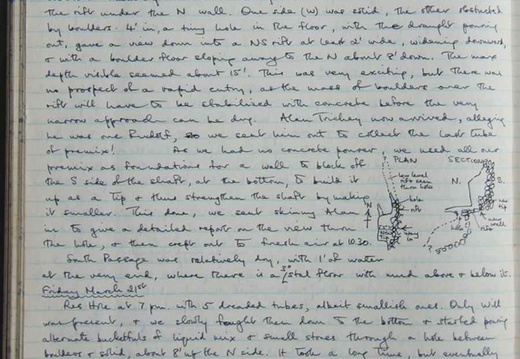 the rift under the N wall. One side (W) was solid, the other obstructed
by boulders. 4' in, a tiny hole in the floor, with the draught pouring
out, gave a view down into a NS rift at least 2' wide, widening downward,
& with a boulder floor sloping away to the N about 8' down. The max
depth visible seemed about 15'. This was very exciting, but there was
no prospect of a rapid entry, as the mass of boulders over the
rift will have to be stabilised with concrete before the very
narrow approach can be dug. Alan Trickey now arrived, alleging
he was one Rudolf, so we sent him out to collect the last tube
of premix!
As we had no concrete power, we need all our
premix as foundations for a wall to block off
the S side of the shaft, at the bottom, to build it
up as a Tip & thus strengthen the shaft by making
it smaller. This done, we sent skinny Alan
in to give a detailed report on the view thru
the hole, & then crept out to fresh air at 10.30.
PLAN
low level
rift seen
thru hole
hole
rift
N
SECTION
N.
S.
hole
new
wall
South Passage was relatively dry, with 1' of water
at the very end, where there is a 3" stal floor with mud above & below it.
Friday March 21st
Res Hole at 7 pm. with 5 dreaded tubes, albeit smallish ones. Only Will
was present, & we slowly fought them down to the bottom & started pouring
alternate bucketfuls of liquid mix & small stones through a hole between
boulders & solid, about 8' up the N side. It took a long time, but eventually